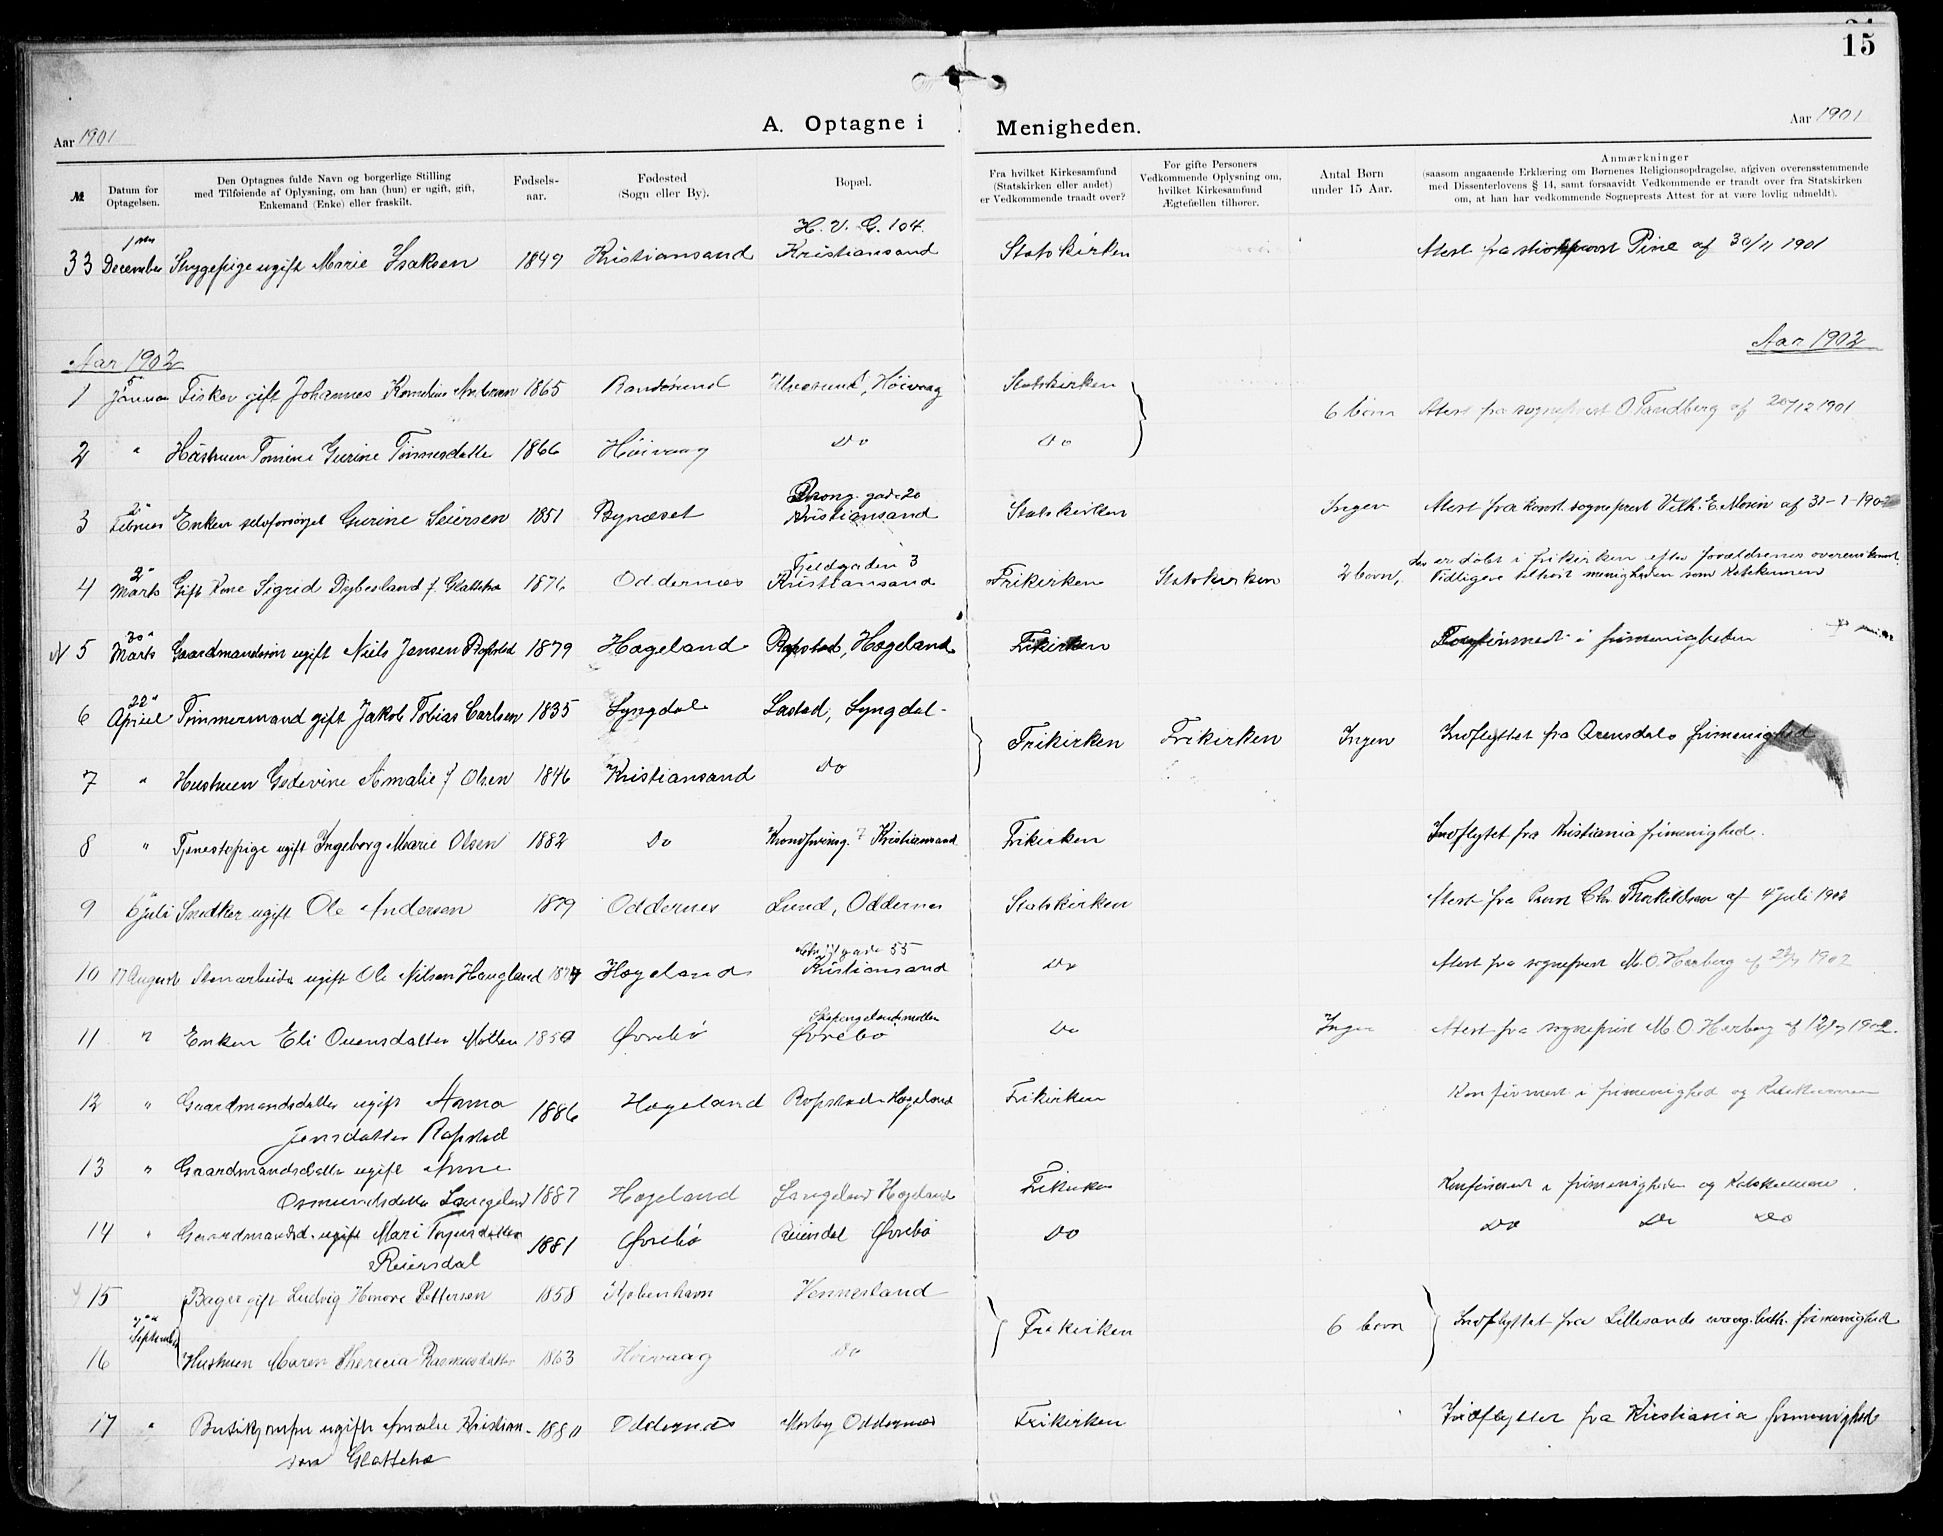 15
A. Optagne i Menigheden.
Aar 1901
Aar 1901
№
Datum for Optagelsen.
Den Optagnes fulde Navn og borgerlige Stilling
med Tilføiende af Oplysning, om han (hun) er ugift, gift,
Enkemand (Enke) eller fraskilt.
Fødsels-
aar.
Fødested
(Sogn eller By).
Bopæl.
Fra hvilket Kirkesamfund
(Statskirken eller andet)
er Vedkommende traadt over?
For gifte Personers
Vedkommende Oplysning om,
hvilket Kirkesamfund
Ægtefællen tilhører.
Antal Børn
under 15 Aar.
Anmærkninger
(saasom angaaende Erklæring om Børnenes Religionsopdragelse, afgiven overensstemmende
med Dissenterlovens § 14, samt forsaavidt Vedkommende er traadt over fra Statskirken
om, at han har vedkommende Sogneprests Attest for at være lovlig udmeldt).
H. V. G. 104.
33 December Strygepige ugift Marie Isaksen 1849 Kristiansand Kristiansand Statskirken Atest fra Pine af 30/11 1901
Aar 1902
Aar 1902
1 5 Januar Fisker gift Johannes Kornelius Andersen 1865 Randøsund Ulvøsund, Høivaag Statskirken 6 børn Atest fra sogneprest O Tandberg af 20/12 1901
2 " Hustruen Tomine Gurine Tønnesdatter 1866 Høivaag Do Do
3 2 Februar Enken selvforsørget Gurine Seiersen 1851 Bynæset Kristiansand Statskirken Ingen Atest fra konst. sogneprest Vilh. E. Mosin af 31-1-1902
Drong. gade 20
4 2 Marts Gift Kone Sigrid Dybesland f. Glattetre 1876 Oddernes Kristiansand Frikirken Statskirken 2 børn, der er døbt i frikirken efter forældrenes overenskomst.
Tidligere tilhørt menigheden som Katekumen
N 5 30 Marts Gaardmandssøn ugift Niels Jensen Ropstad 1879 Hægeland Ropstad, Hægeland Frikirken Konfirmert i frimenigheden
6 22 April Tømmermand gift Jakob Tobias Carlsen 1835 Lyngdal Lastad, Lyngdal Frikirken Frikirken Ingen Indflyttet fra Arensdals frimenighed
7 " Hustruen Gedevine Amalie f Olsen 1846 Kristiansand Do
8 " Tjenestepige ugift Ingeborg Marie Olsen 1882 Do Kristiansand Frikirken Indflytet fra Kristiania frimenighed.
9 6 Juli Snedker ugift Ole Andersen 1879 Oddernes Lund, Oddernes Statskirken Atest fra Prost Chr. Thorkildsen af 4 Juli 1902
10 17 August Stenarbeider ugift Ole Nilsen Haugland 1874 Hægeland Kristiansand Do Atest fra sogneprest M. O. Herberg af 1902
11 " Enken Eli Ouensdatter Mollen 1850 Øvrebø Øvrebø Do Ingen Atest fra sogneprest M O Herberg af 12/7 1902.
12 " Gaardmandsdatter ugift Anna
Jensdatter Ropstad 1886 Hægeland Ropstad Hægeland Frikirken Konfirmert i frimenighed og Katekumen
13 " Gaardmandsdatter ugift Anne
Osmundsdatter Langeland 1887 Hægeland Langeland Hægeland Frikirken Konfirmert i frimenigheden og Katekumen.
14 " Gaardmandsd. ugift Mari Torjusdatter
Reiersdal 1881 Øvrebø Reiersdal Øvrebø Do Do Do Do
15 September Bager gift Ludvig Honore Pettersen 1858 Kjøbenhavn Vennesland Frikirken 6 børn Indflyttet fra Lillesands evang. luth. frimenighed
16 Hustruen Maren Therecia Rasmusdatter 1863 Høivaag Do
17 " Butikjomfru ugift Amalie Kristian-
sen Glattetre 1880 Oddernæs Mosby Oddernes Frikirken Indflyttet fra Kristiania frimenighed